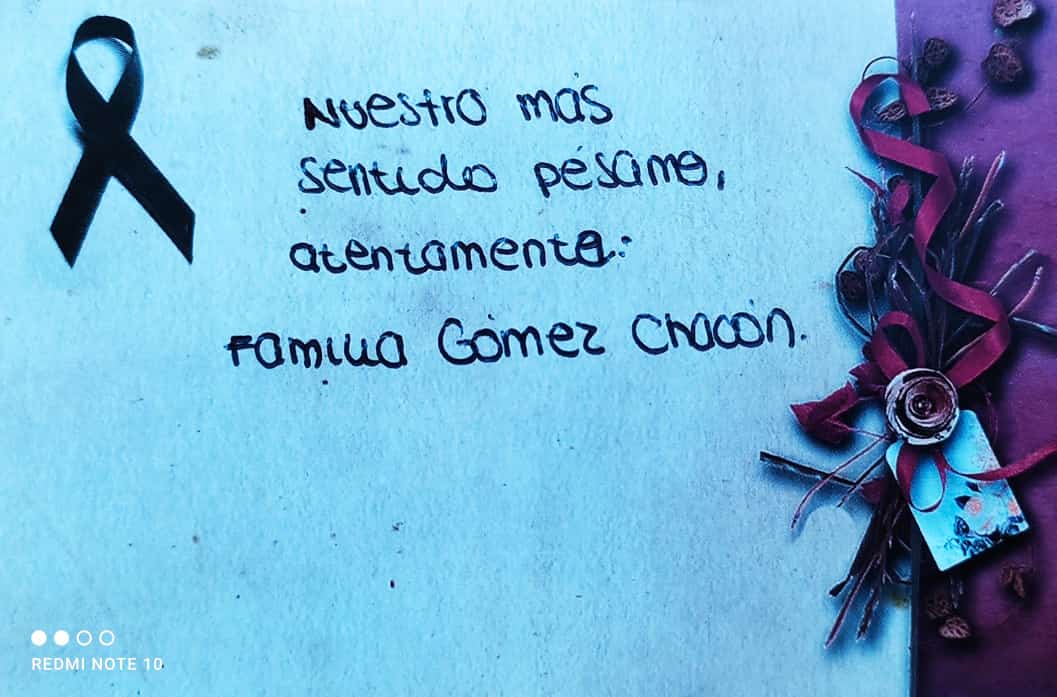 Nuestro mas
sentido pésame,
atentamente:
Familia Gómez Chacón.
REDMI NOTE 10